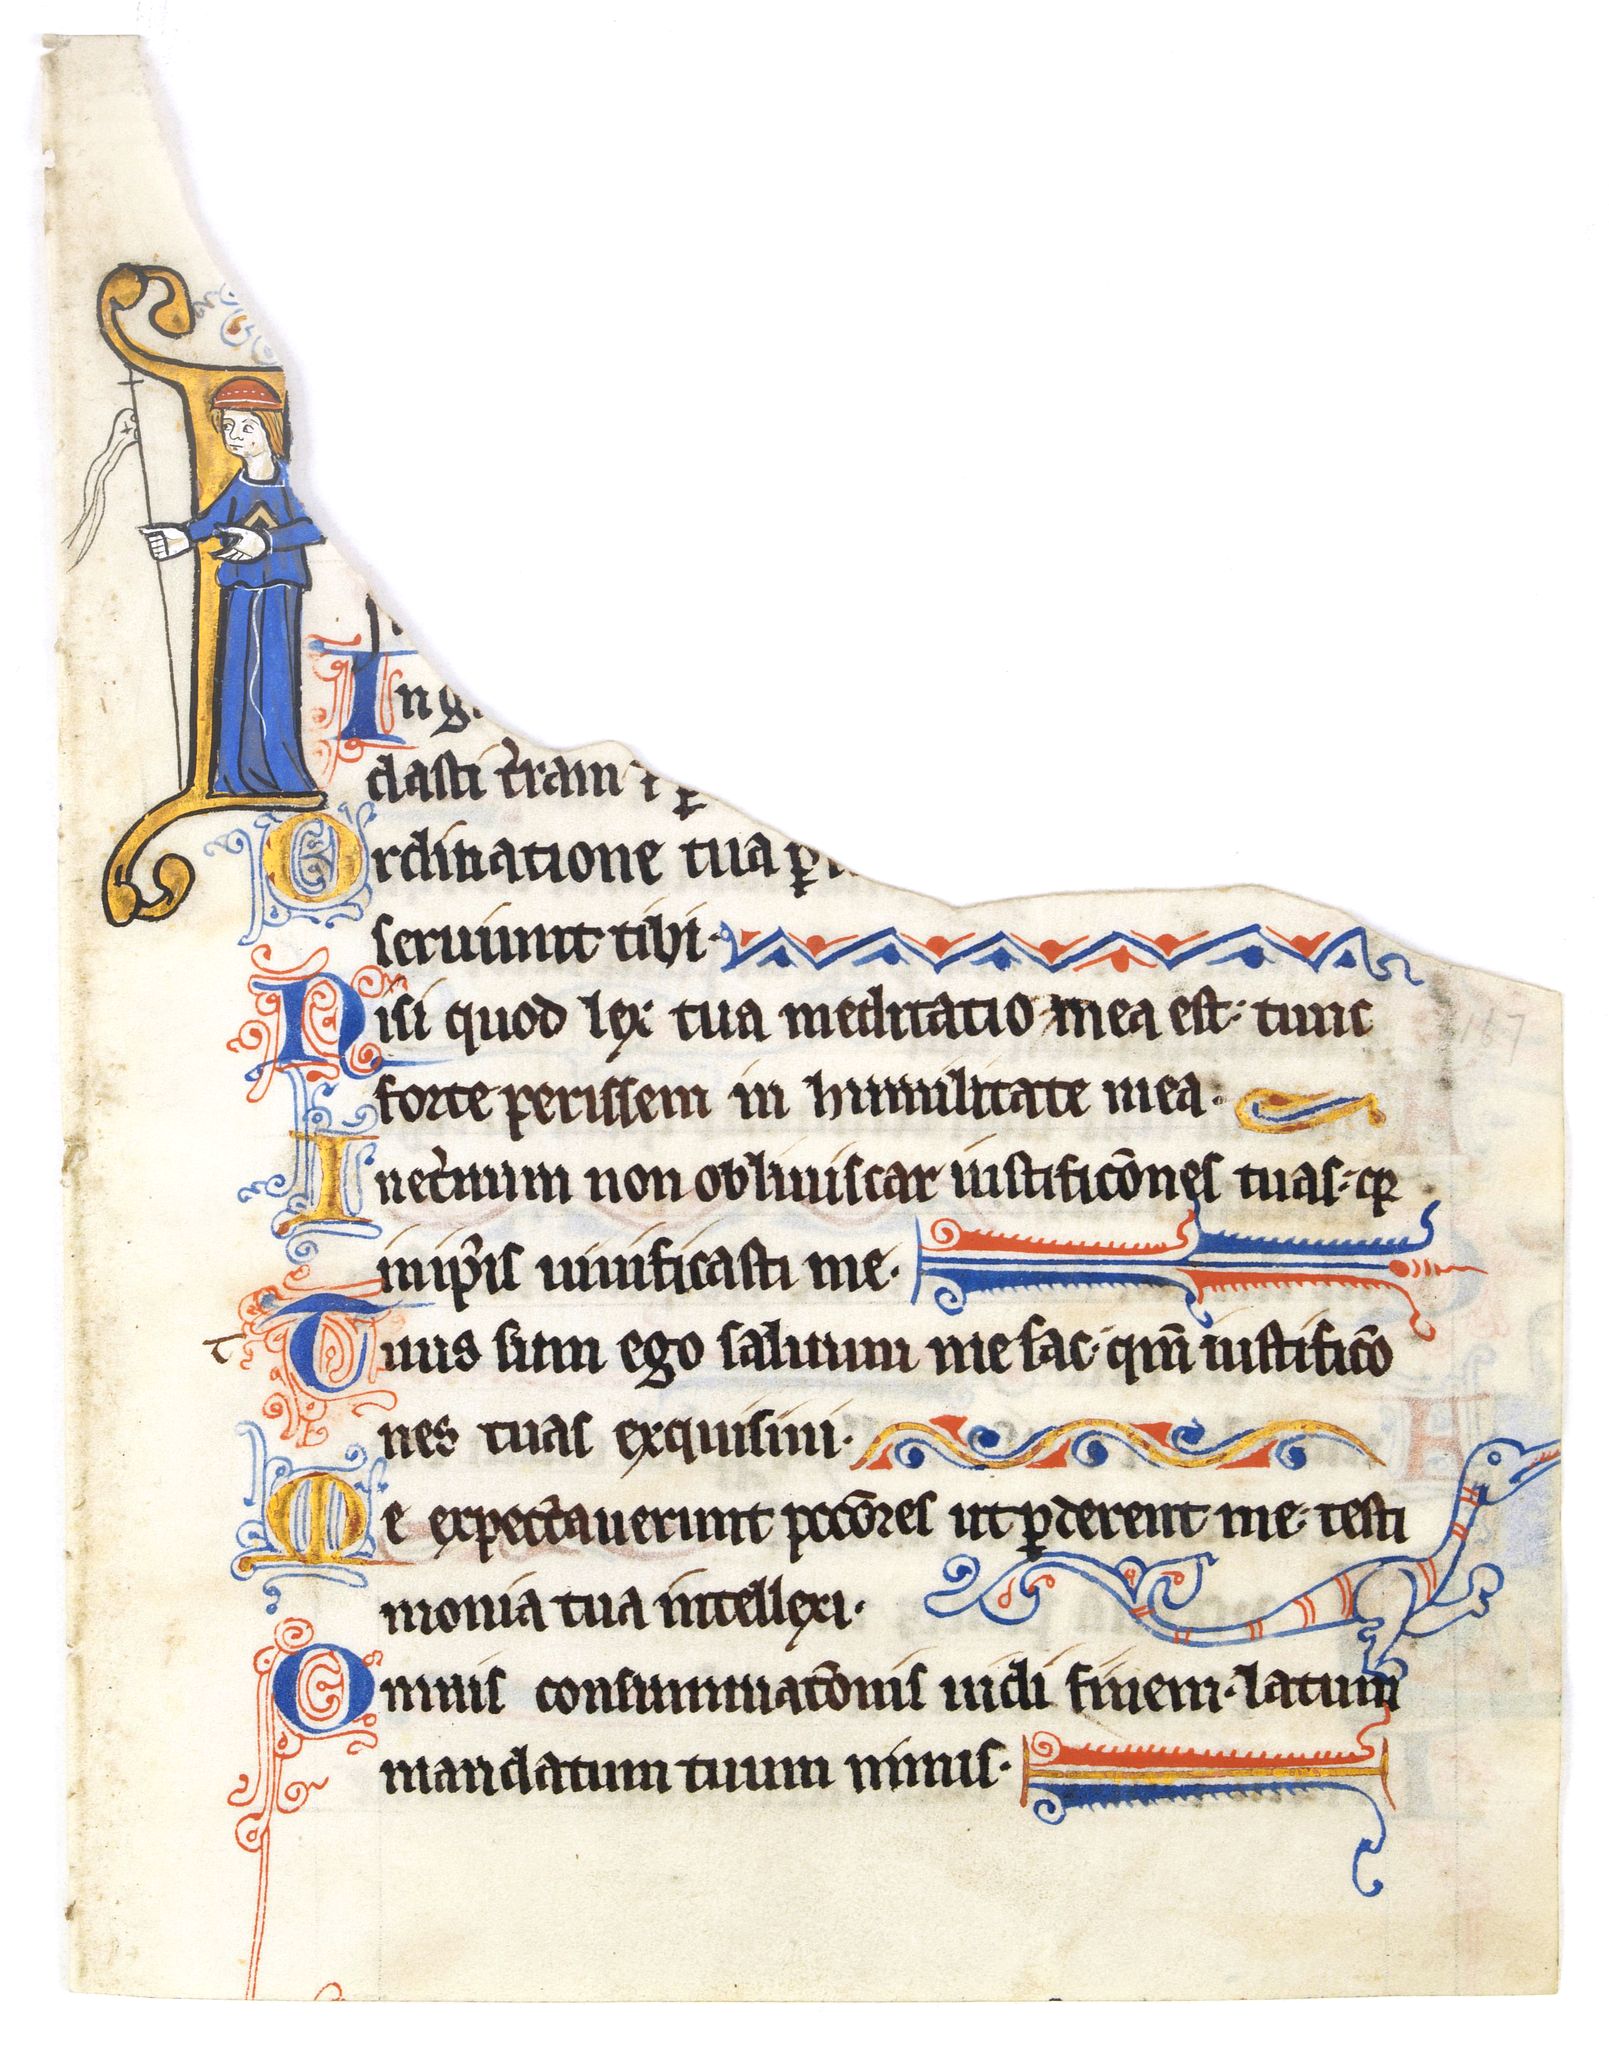 In g
dasti t̾ram ⁊ ꝑ
Ordinatione tua ꝑ
seruiunt tibi·
Nisi quod lex tua meditatio mea est· tunc
forte perissem in humilitate mea·
In et̾num non obliuiscar iustificōnes tuas· qꝛ
in ip̄is uiuificasti me·
Tuus sum ego saluum me fac· qm̄ iustificō
nes tuas exquisiui·
Me expectauerunt pccōres ut ꝑderent me· testi
monia tua intellexi·
Omnis consummatōnis uidi finem· latum
mandatum tuum nimis·
167